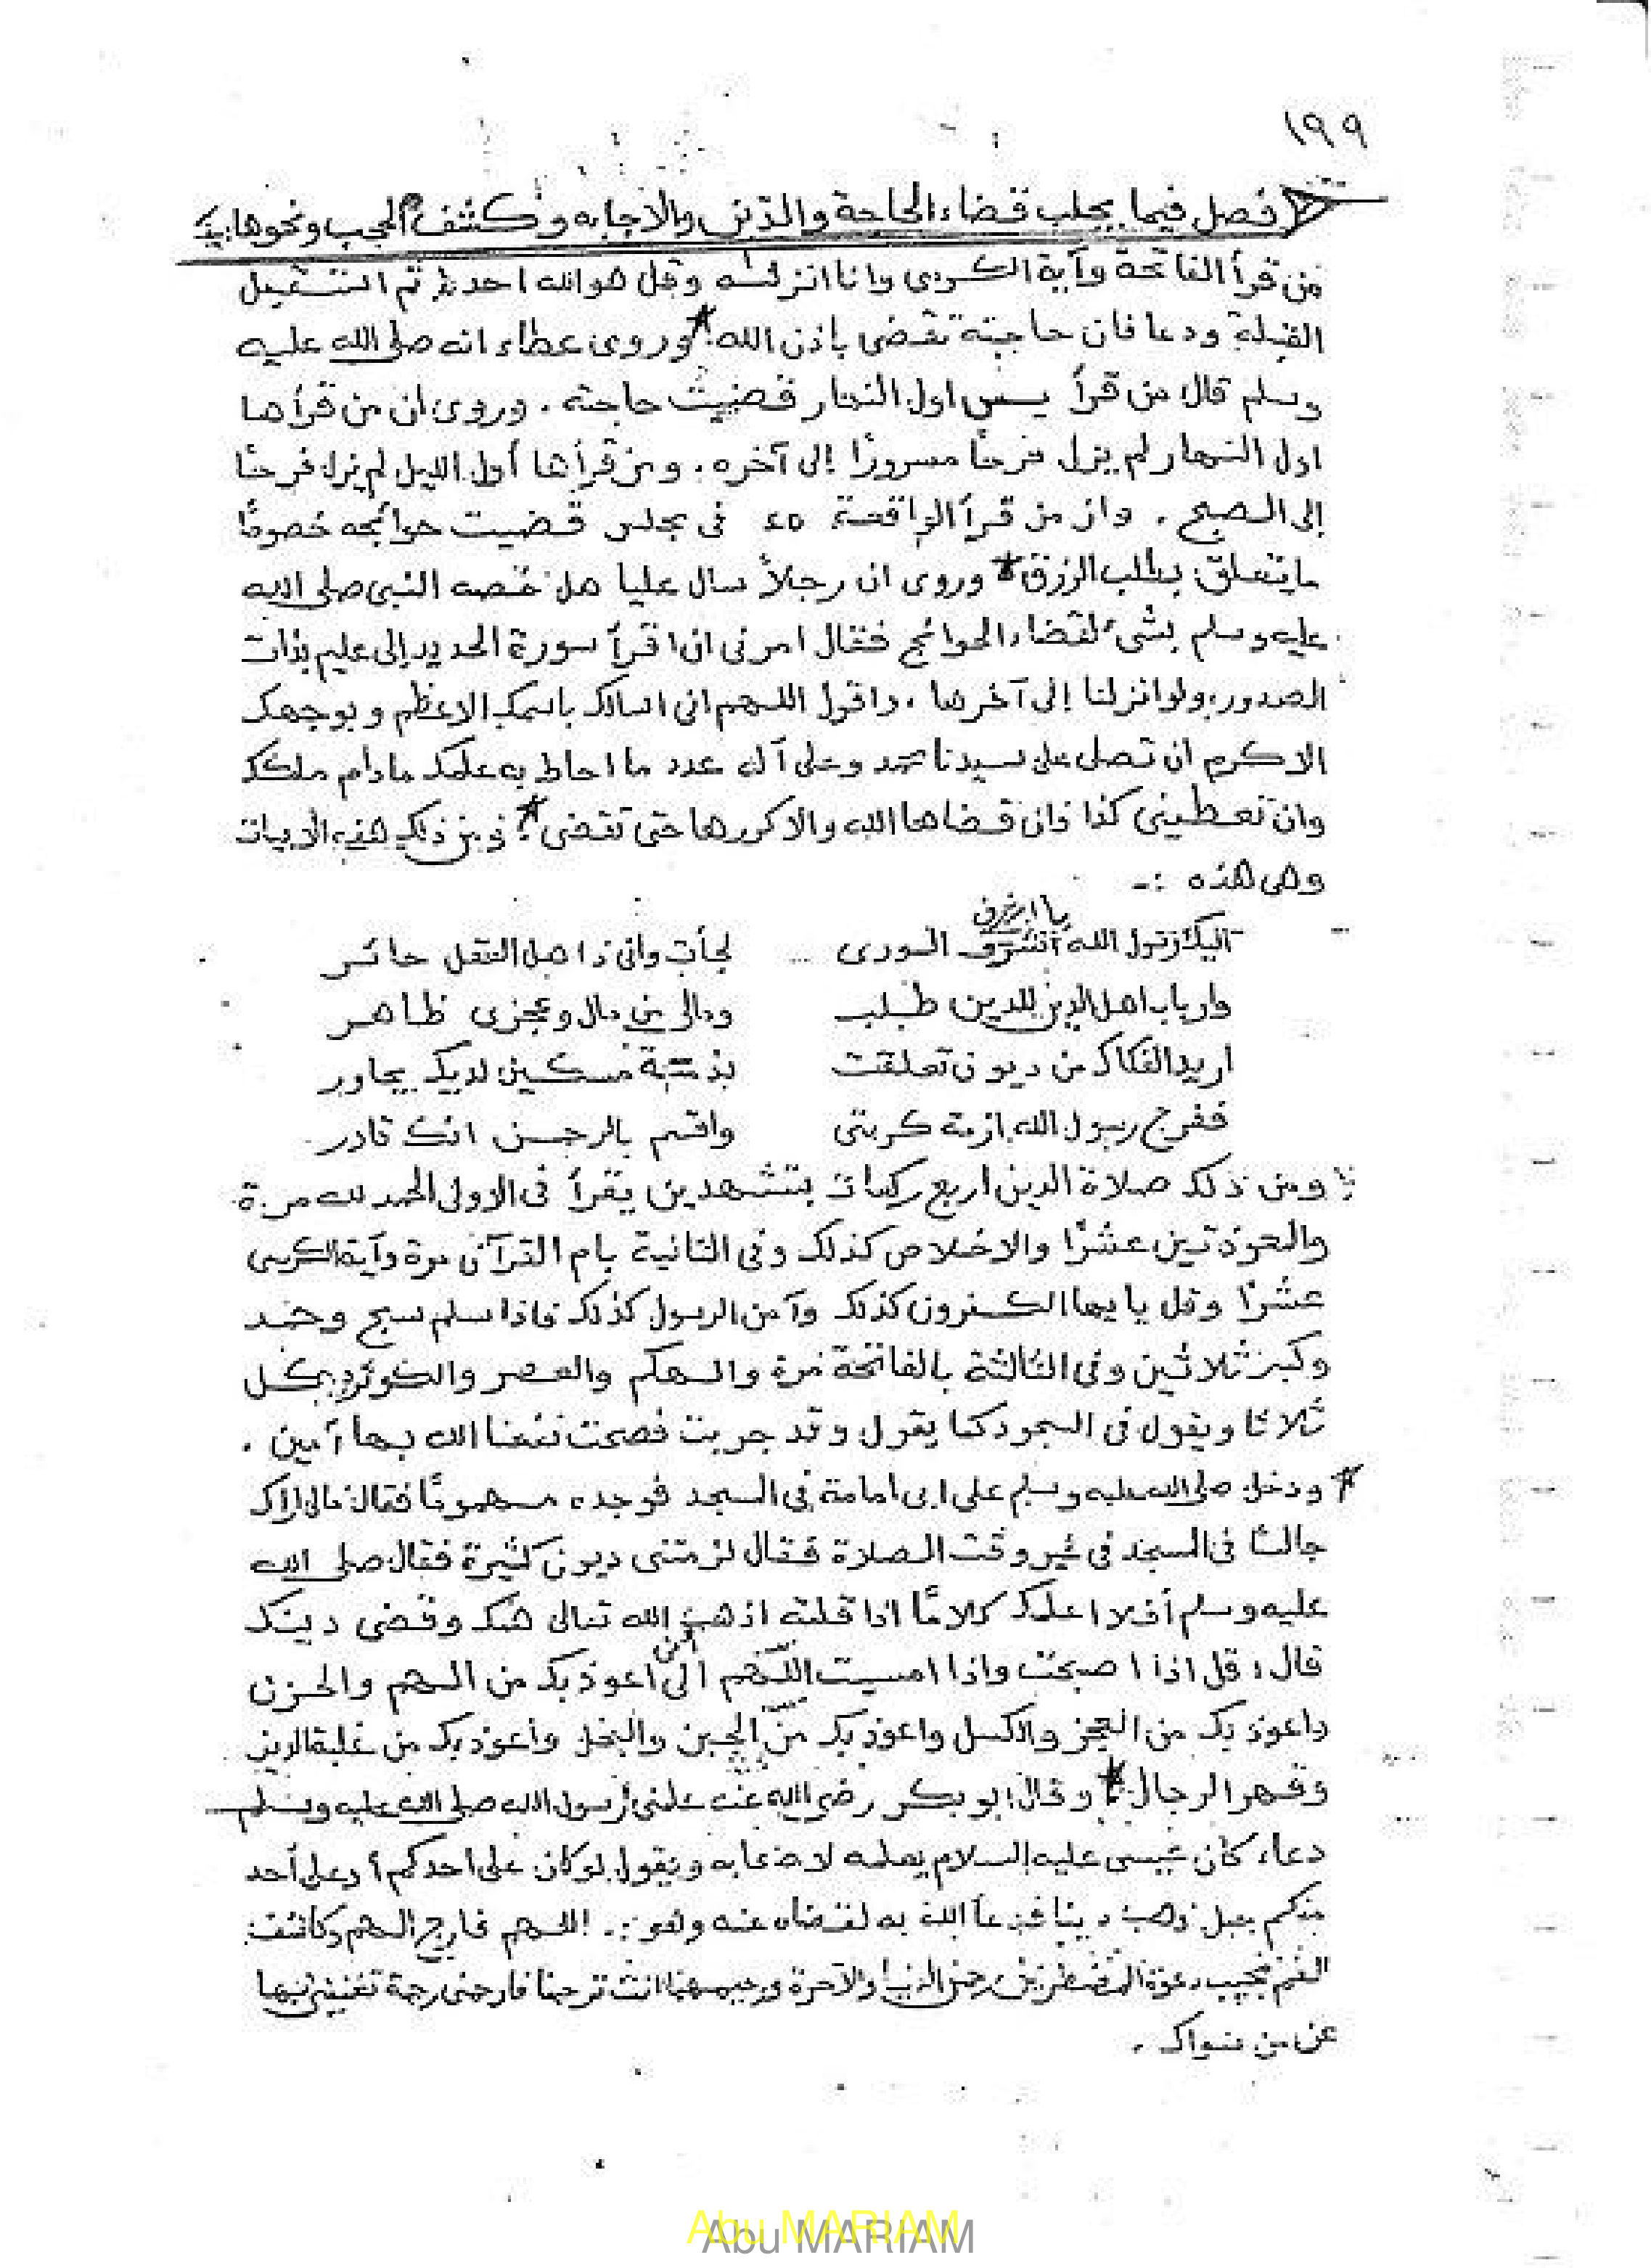 ١٩٩
فصل فيما يجلب قضاء الحاجة والدين والاجابه وكشف الحجب ونحوها
من قرأ الفاتحة وآية الكرسى وانا انزلنه وقل هو الله احد ثم استقبل
القبلة ودعا فان حاجته تقضى باذن الله * وروى عطاء انه صلى الله عليه
وسلم قال من قرأ يس اول النهار قضيت حاجته . وروى ان من قرأها
اول النهار لم يزل فرحًا مسرورًا إلى آخره . ومن قرأها أول الليل لم يزل فرحًا
إلى الصبح . وان من قرأ الواقعة ٤٥ فى مجلس قضيت حوائجه خصوصًا
ما يتعلق بطلب الرزق * وروى ان رجلاً سال عليا هل خصه النبى صلى الله
عليه وسلم بشئ لقضاء الحوائج فقال امرنى ان اقرأ سورة الحديد إلى عليم بذات
الصدور ولو انزلنا إلى آخرها . واقول اللهم انى اسالك باسمك الاعظم وبوجهك
الاكرم ان تصلى على سيدنا محمد وعلى آله عدد ما احاط به علمك مادام ملكك
وان تعطينى كذا فان قضاها الله والا كررها حتى تقضى * ومن ذلك هذه الابيات
وهى هذه :-
يا اشرف
اليك رسول الله اشرف الورى لجأت وانى ذاهل العقل حائر
وارباب اهل الدين للدين طلب ومالى من مال وعجزى ظاهر
اريد الفكاك من ديون تعلقت بذمة مسكين لديك يجاور
ففرج رسول الله ازمة كربتى واقسم بالرحمن انك قادر
ومن ذلك صلاة الدين اربع ركعات بتشهدين يقرأ فى الاولى الحمد لله مرة
والمعوذتين عشرًا والاخلاص كذلك وفى الثانية بام القرآن مرة وآية الكرسى
عشرًا وقل يا يها الكفرون كذلك وآمن الرسول كذلك فاذا سلم سبح وحمد
وكبر ثلاثين وفى الثالثة بالفاتحة مرة والهكم والعصر والكوثر بكل
ثلاثا ويقول فى السجود كما يقول وقد جربت فصحت نفعنا الله بها آمين .
* ودخل صلى الله عليه وسلم على ابى امامة فى المسجد فوجده مهمومًا فقال مالى اراك
جالسًا فى المسجد فى غير وقت الصلاة فقال لزمتنى ديون كثيرة فقال صلى الله
عليه وسلم أفلا اعلمك كلامًا اذا قلته اذهب الله تعالى همك وقضى دينك
قال : قل اذا اصبحت واذا امسيت اللهم انى اعوذ بك من الهم والحزن
واعوذ بك من العجز والكسل واعوذ بك من الجبن والبخل واعوذ بك من غلبة الدين
وقهر الرجال * وقال ابو بكر رضى الله عنه علمنى رسول الله صلى الله عليه وسلم
دعاء كان عيسى عليه السلام يعلمه لاصحابه ويقول لو كان على احدكم أو على أحد
منكم جبل ذهب دينا فدعا الله به لقضاه عنه وهو :. اللهم فارج الهم وكاشف
الغم مجيب دعوة المضطرين رحمن الدنيا والآخرة ورحيمهما انت ترحمنا فارحمنى رحمة تغنينى بها
عن من سواك .
Abu MARIAM
Abu MARIAM